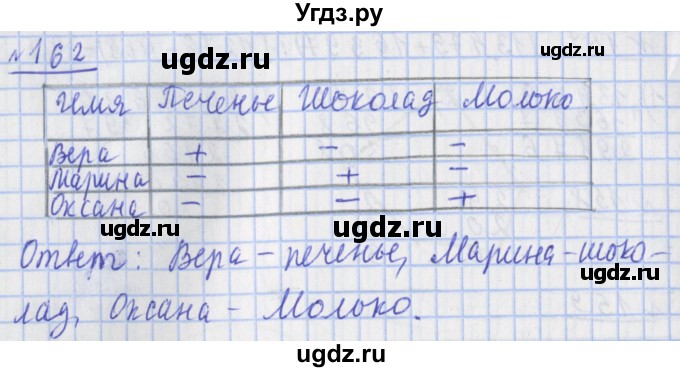 Угдз.ру
№162
ugdz.ru
ugdz.ru
Имя Печенье Шоколад Молоко
Вера + - -
ugdz.ru
Марина - + -
Оксана - - +
ugdz.ru
Ответ: Вера - печенье, Марина - шоко-
ugdz.ru
лад, Оксана - Молоко.
ugdz.ru